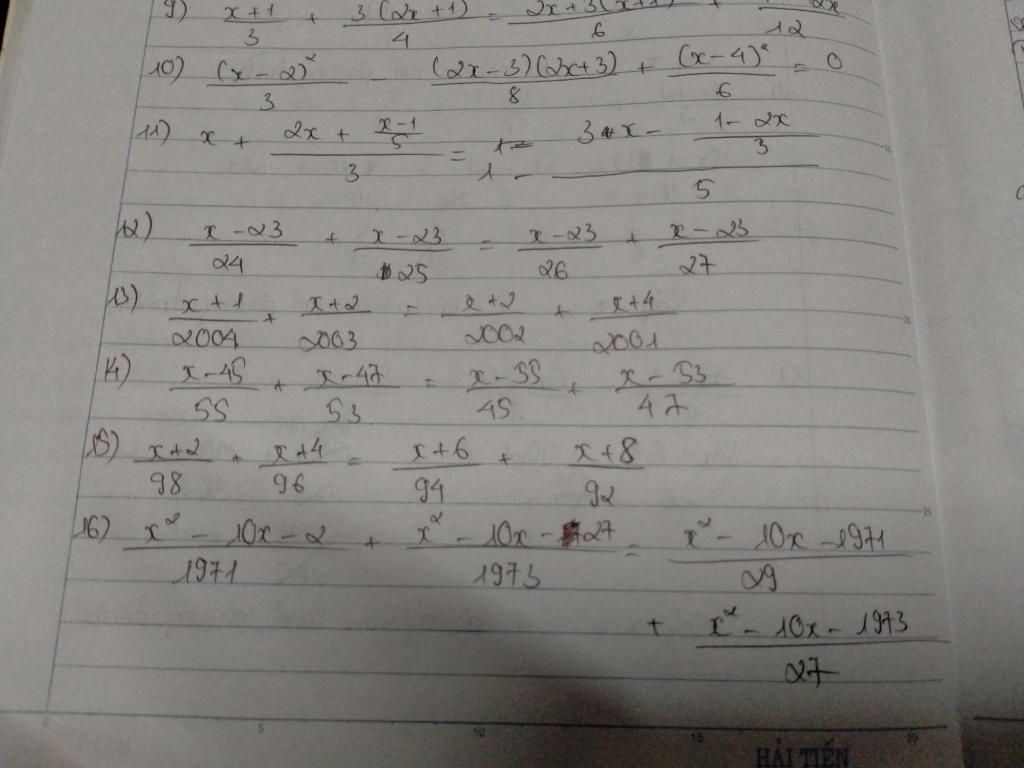 9) (x+1)/3 + 3(2x+1)/4 = 2x+3(x+1)/6 + 12
10) (x-2)²/3 - (2x-3)(2x+3)/8 + (x-4)²/6 = 0
11) x + (2x + (x-1)/5)/3 = 1 - (3 x - (1-2x)/3)/5
12) (x-23)/24 + (x-23)/25 = (x-23)/26 + (x-23)/27
13) (x+1)/2004 + (x+2)/2003 = (x+2)/2002 + (x+4)/2001
14) (x-45)/55 + (x-47)/53 = (x-55)/45 + (x-53)/47
15) (x+2)/98 + (x+4)/96 = (x+6)/94 + (x+8)/92
16) (x²-10x-2)/1971 + (x²-10x-27)/1973 = (x²-10x-1971)/29
+ (x²-10x-1973)/27
0 5 10 15 20
HẢI TIẾN